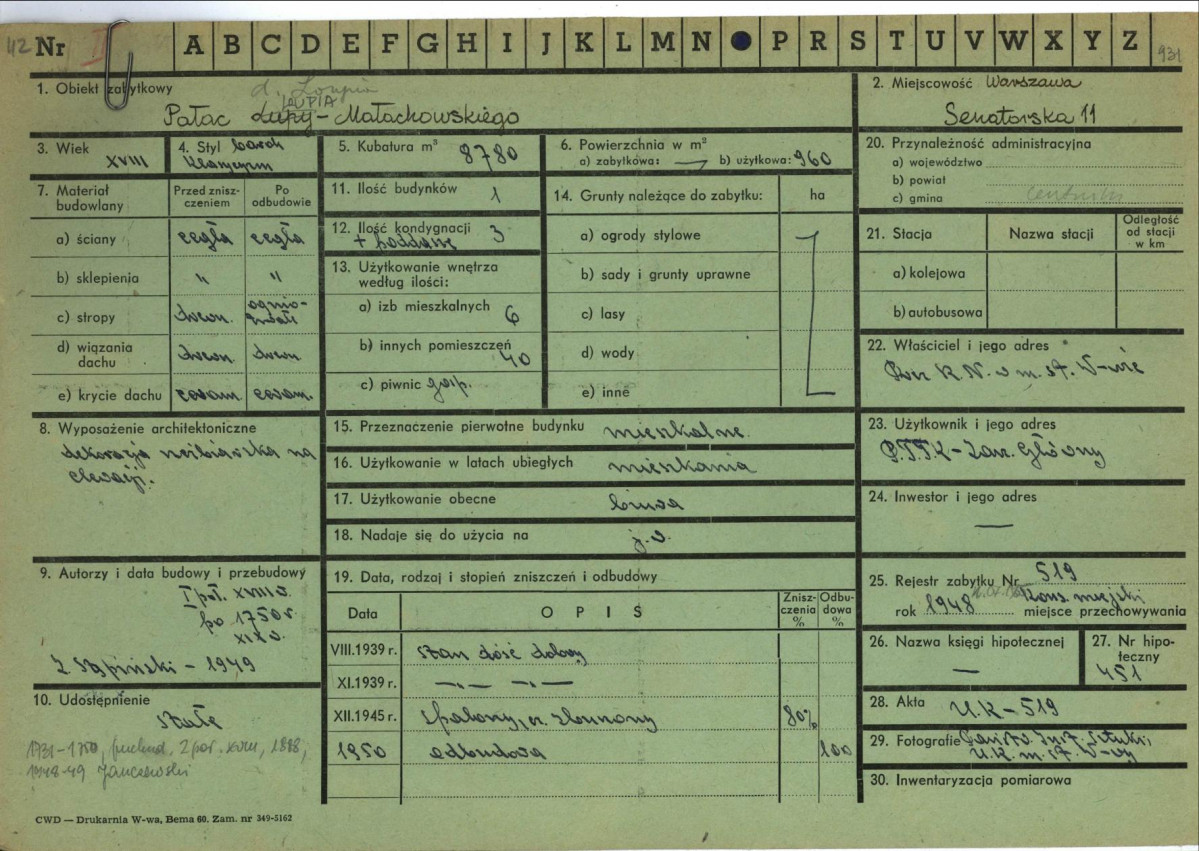 42 Nr II A B C D E F G H I J K L M N P R S T U V W X Y Z 931
1. Obiekt zabytkowy
d. Loupia
LOUPIA
Pałac Łupy-Małachowskiego
2. Miejscowość Warszawa
Senatorska 11
3. Wiek
XVIII
4. Styl barok
klasycyzm
5. Kubatura m³ 8780
6. Powierzchnia w m²
a) zabytkowa: — b) użytkowa: 960
7. Materiał budowlany
Przed zniszczeniem
Po odbudowie
a) ściany cegła cegła
b) sklepienia " "
c) stropy drewn. ognio-
trwałe
d) wiązania
dachu drewn. drewn.
e) krycie dachu
8. Wyposażenie architektoniczne
dekoracja rzeźbiarska na
elewacji.
9. Autorzy i data budowy i przebudowy
I poł. XVIII w.
po 1750 r.
XIX w.
Z Stępiński – 1949
10. Udostępnienie
stałe
1731-1750, przebud. 2 poł. XVIII, 1888,
1948-49 Janczewski
11. Ilość budynków 1
12. Ilość kondygnacji 3
+ poddasze
13. Użytkowanie wnętrza
według ilości:
a) izb mieszkalnych 6
b) innych pomieszczeń
40
c) piwnic gosp.
14. Grunty należące do zabytku: ha
a) ogrody stylowe
b) sady i grunty uprawne
c) lasy
d) wody
e) inne
15. Przeznaczenie pierwotne budynku mieszkalne
16. Użytkowanie w latach ubiegłych mieszkania
17. Użytkowanie obecne biura
18. Nadaje się do użycia na j.w.
19. Data, rodzaj i stopień zniszczeń i odbudowy
Data OPIS Zniszczenia % Odbudowa %
VIII.1939 r. stan dość dobry
XI.1939 r. —„— —„—
XII.1945 r. spalony, zburzony 80%
1950 odbudowa 100
20. Przynależność administracyjna
a) województwo
b) powiat
c) gmina
21. Stacja Nazwa stacji Odległość od stacji w km
a) kolejowa
b) autobusowa
22. Właściciel i jego adres
Prez R.N. w m. st. W-wie
23. Użytkownik i jego adres
P.T.T.K – Zarz. Główny
24. Inwestor i jego adres
—
25. Rejestr zabytku Nr 519
rok 1948 Kons. miejski miejsce przechowywania
26. Nazwa księgi hipotecznej
—
27. Nr hipoteczny
451
28. Akta U.K – 519
29. Fotografie Państw. Inst. Sztuki,
U.K. m. st. W-wy
30. Inwentaryzacja pomiarowa
CWD — Drukarnia W-wa, Bema 60. Zam. nr 349-5162